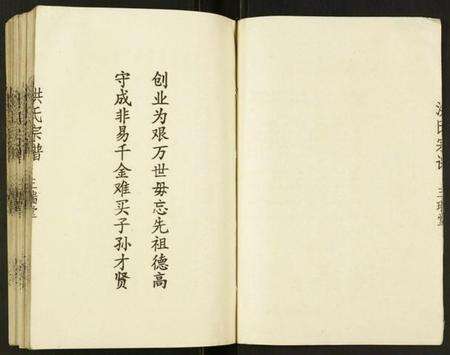 创业为艰万世毋忘先祖德高
守成非易千金难买子孙才贤
洪氏宗谱
三瑞堂